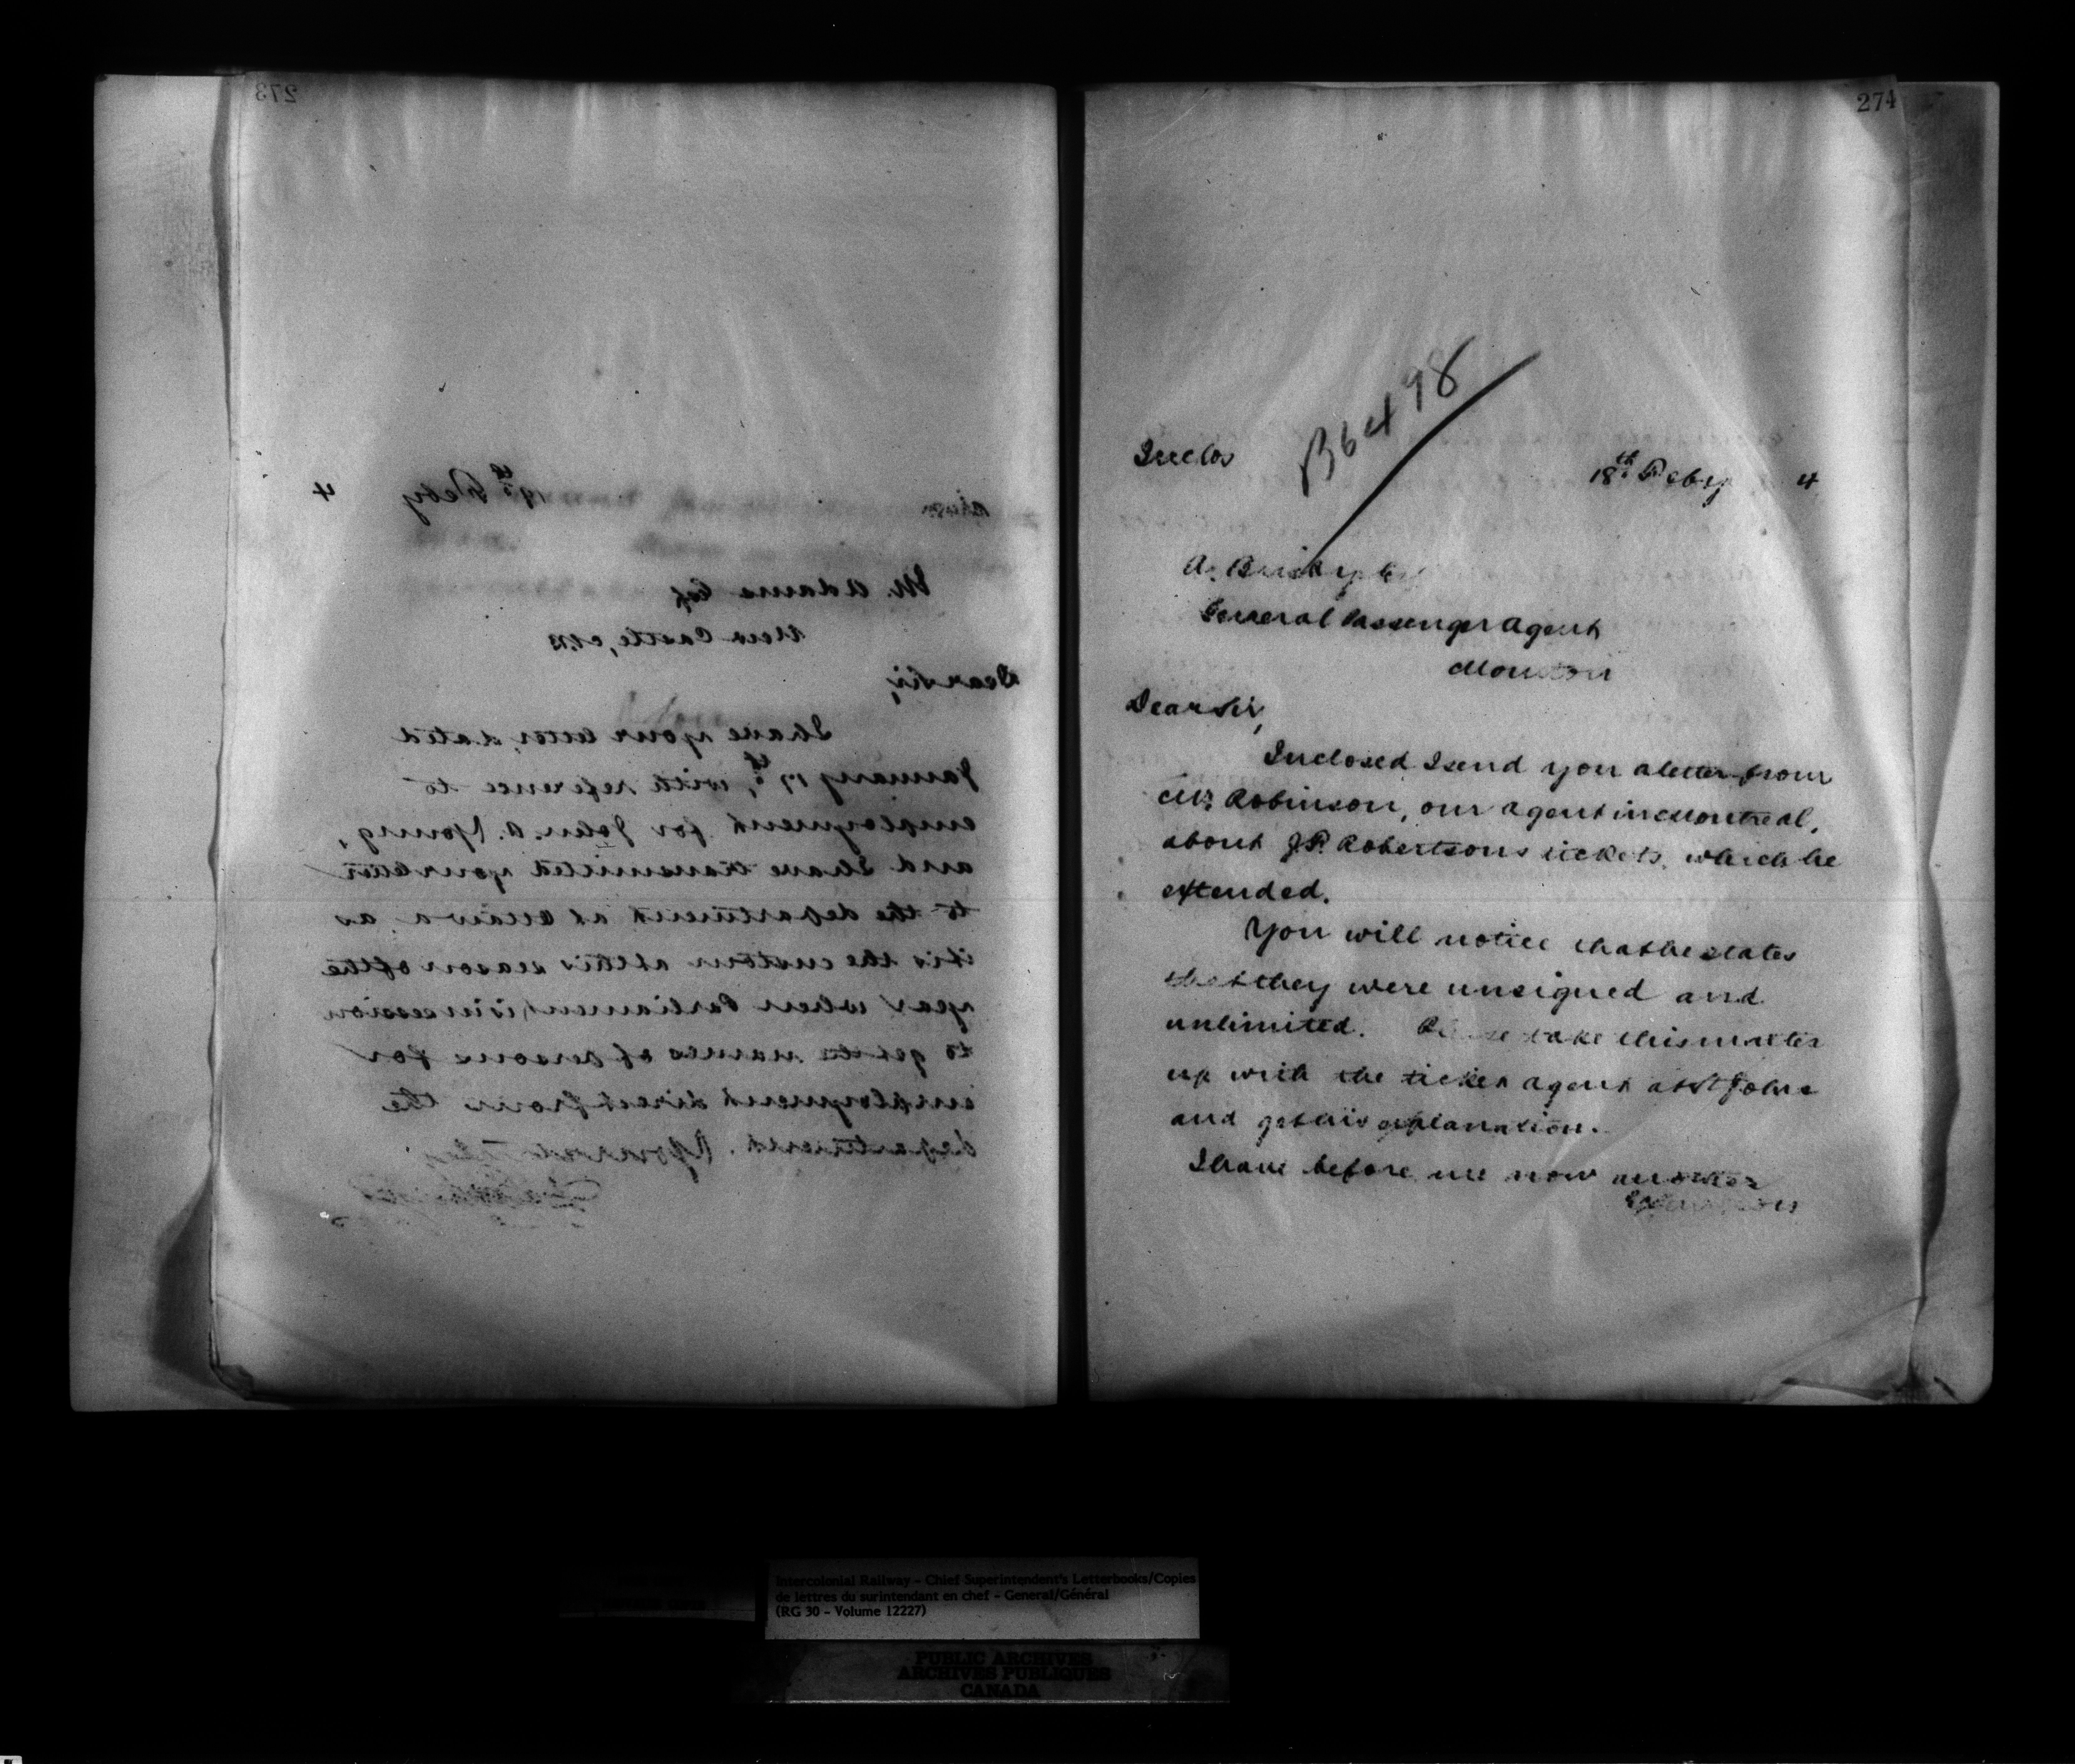 273
19th Feby 4
M. Adams Esq
New Castle, N.B
Dear Sir,
I have your letter, dated
January 17th, with reference to
employment for John. A. Young,
and I have transmitted your letter
to the department at Ottawa, as
it is the custom at this season of the
year when Parliament is in session
to get the names of persons for
employment direct from the
department. Yours truly
274
Inclos
B6498
18th Feby 4
A. Busby Esq
General Passenger Agent
Moncton
Dear Sir,
Inclosed I send you a letter from
Mr Robinson, our agent in Montreal,
about J.P. Robertsons tickets, which he
extended.
You will notice that he states
that they were unsigned and
unlimited. Please take this matter
up with the ticket agent at St John
and get his explanation.
I have before me now another
Intercolonial Railway – Chief Superintendent's Letterbooks/Copies
de lettres du surintendant en chef – General/Général
(RG 30 – Volume 12227)
PUBLIC ARCHIVES
ARCHIVES PUBLIQUES
CANADA